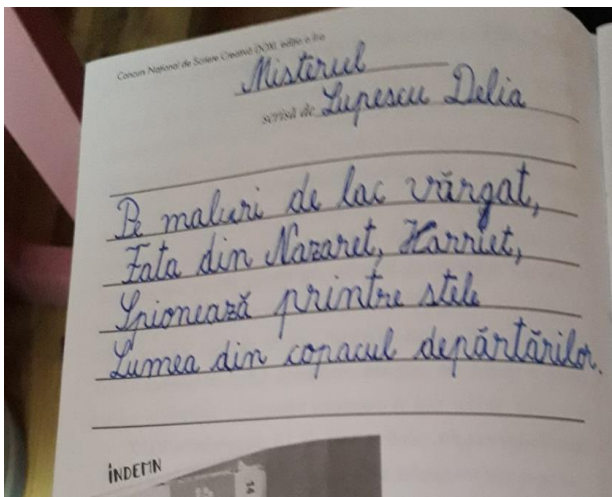 Concurs Național de Scriere Creativă DOXI, ediția a II-a
Misterul
scrisă de Lupescu Delia
Pe maluri de lac vărgat,
Fata din Nazaret, Harriet,
Spionează printre stele
Lumea din copacul depărtărilor.
ÎNDEMN
14